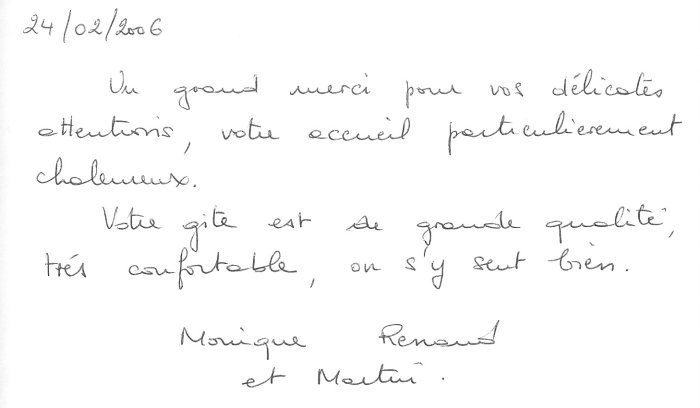 24/02/2006
Un grand merci pour vos délicates
attentions, votre accueil particulièrement
chaleureux.
Votre gite est de grande qualité,
trés confortable, on s'y sent bien.
Monique Renaud
et Martin.